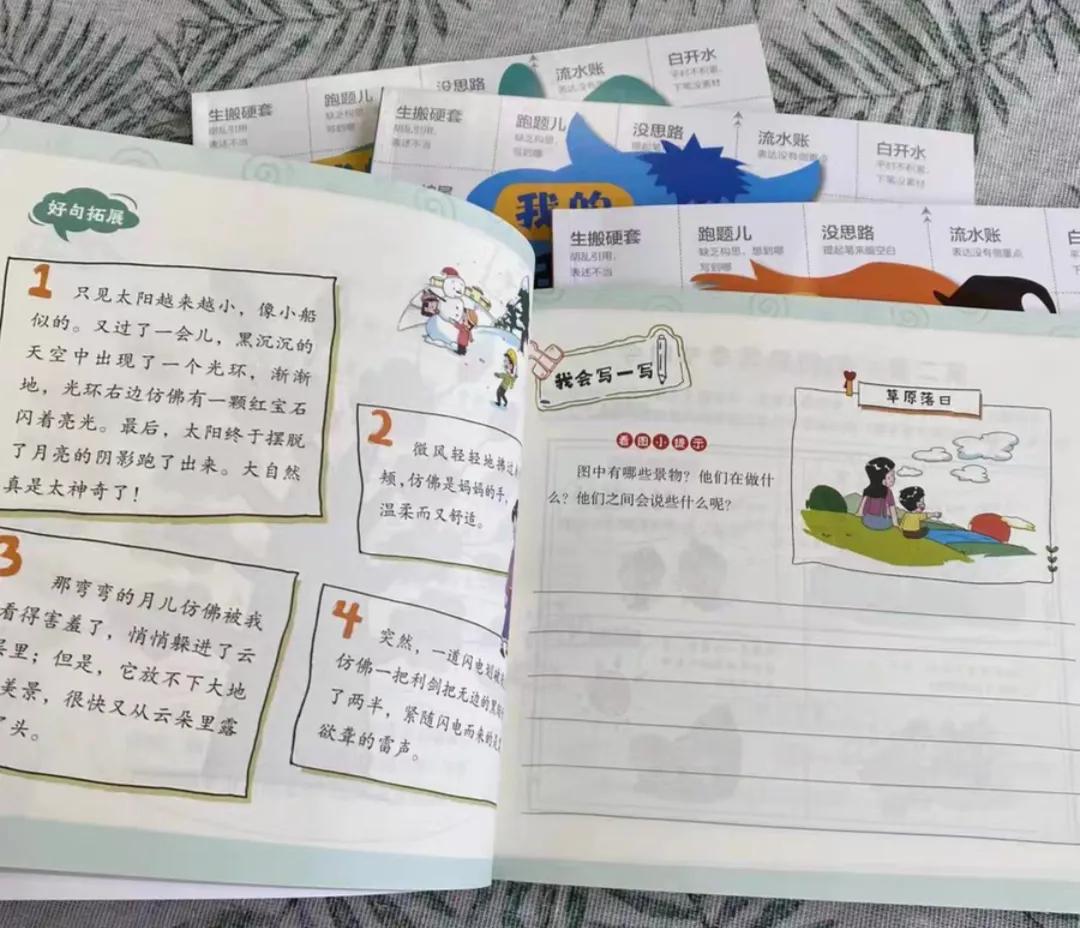 没思路
流水账
白开水
平时不积累，
下笔没素材
生搬硬套
胡乱引用，
表述不当
跑题儿
缺乏构思，
写到哪
生搬硬套
胡乱引用，
表述不当
跑题儿
缺乏构思，
写到哪
没思路
流水账
表达没有侧重点
白开水
平时不积累，
下笔没素材
我的
生搬硬套
胡乱引用，
表述不当
跑题儿
缺乏构思，想到哪
写到哪
没思路
提起笔来脑空白
流水账
表达没有侧重点
白
好句拓展
1
只见太阳越来越小，像小船
似的。又过了一会儿，黑沉沉的
天空中出现了一个光环，渐渐
地，光环右边仿佛有一颗红宝石
闪着亮光。最后，太阳终于摆脱
了月亮的阴影跑了出来。大自然
真是太神奇了！
2
微风轻轻地拂过
颊，仿佛是妈妈的手，
温柔而又舒适。
3
那弯弯的月儿仿佛被我
看得害羞了，悄悄躲进了云
里；但是，它放不下大地
美景，很快又从云朵里露
了头。
4
突然，一道闪电划破
仿佛一把利剑把无边的黑
了两半，紧随闪电而来的是
欲聋的雷声。
我会写一写
看图小提示
图中有哪些景物？他们在做什
么？他们之间会说些什么呢？
草原落日